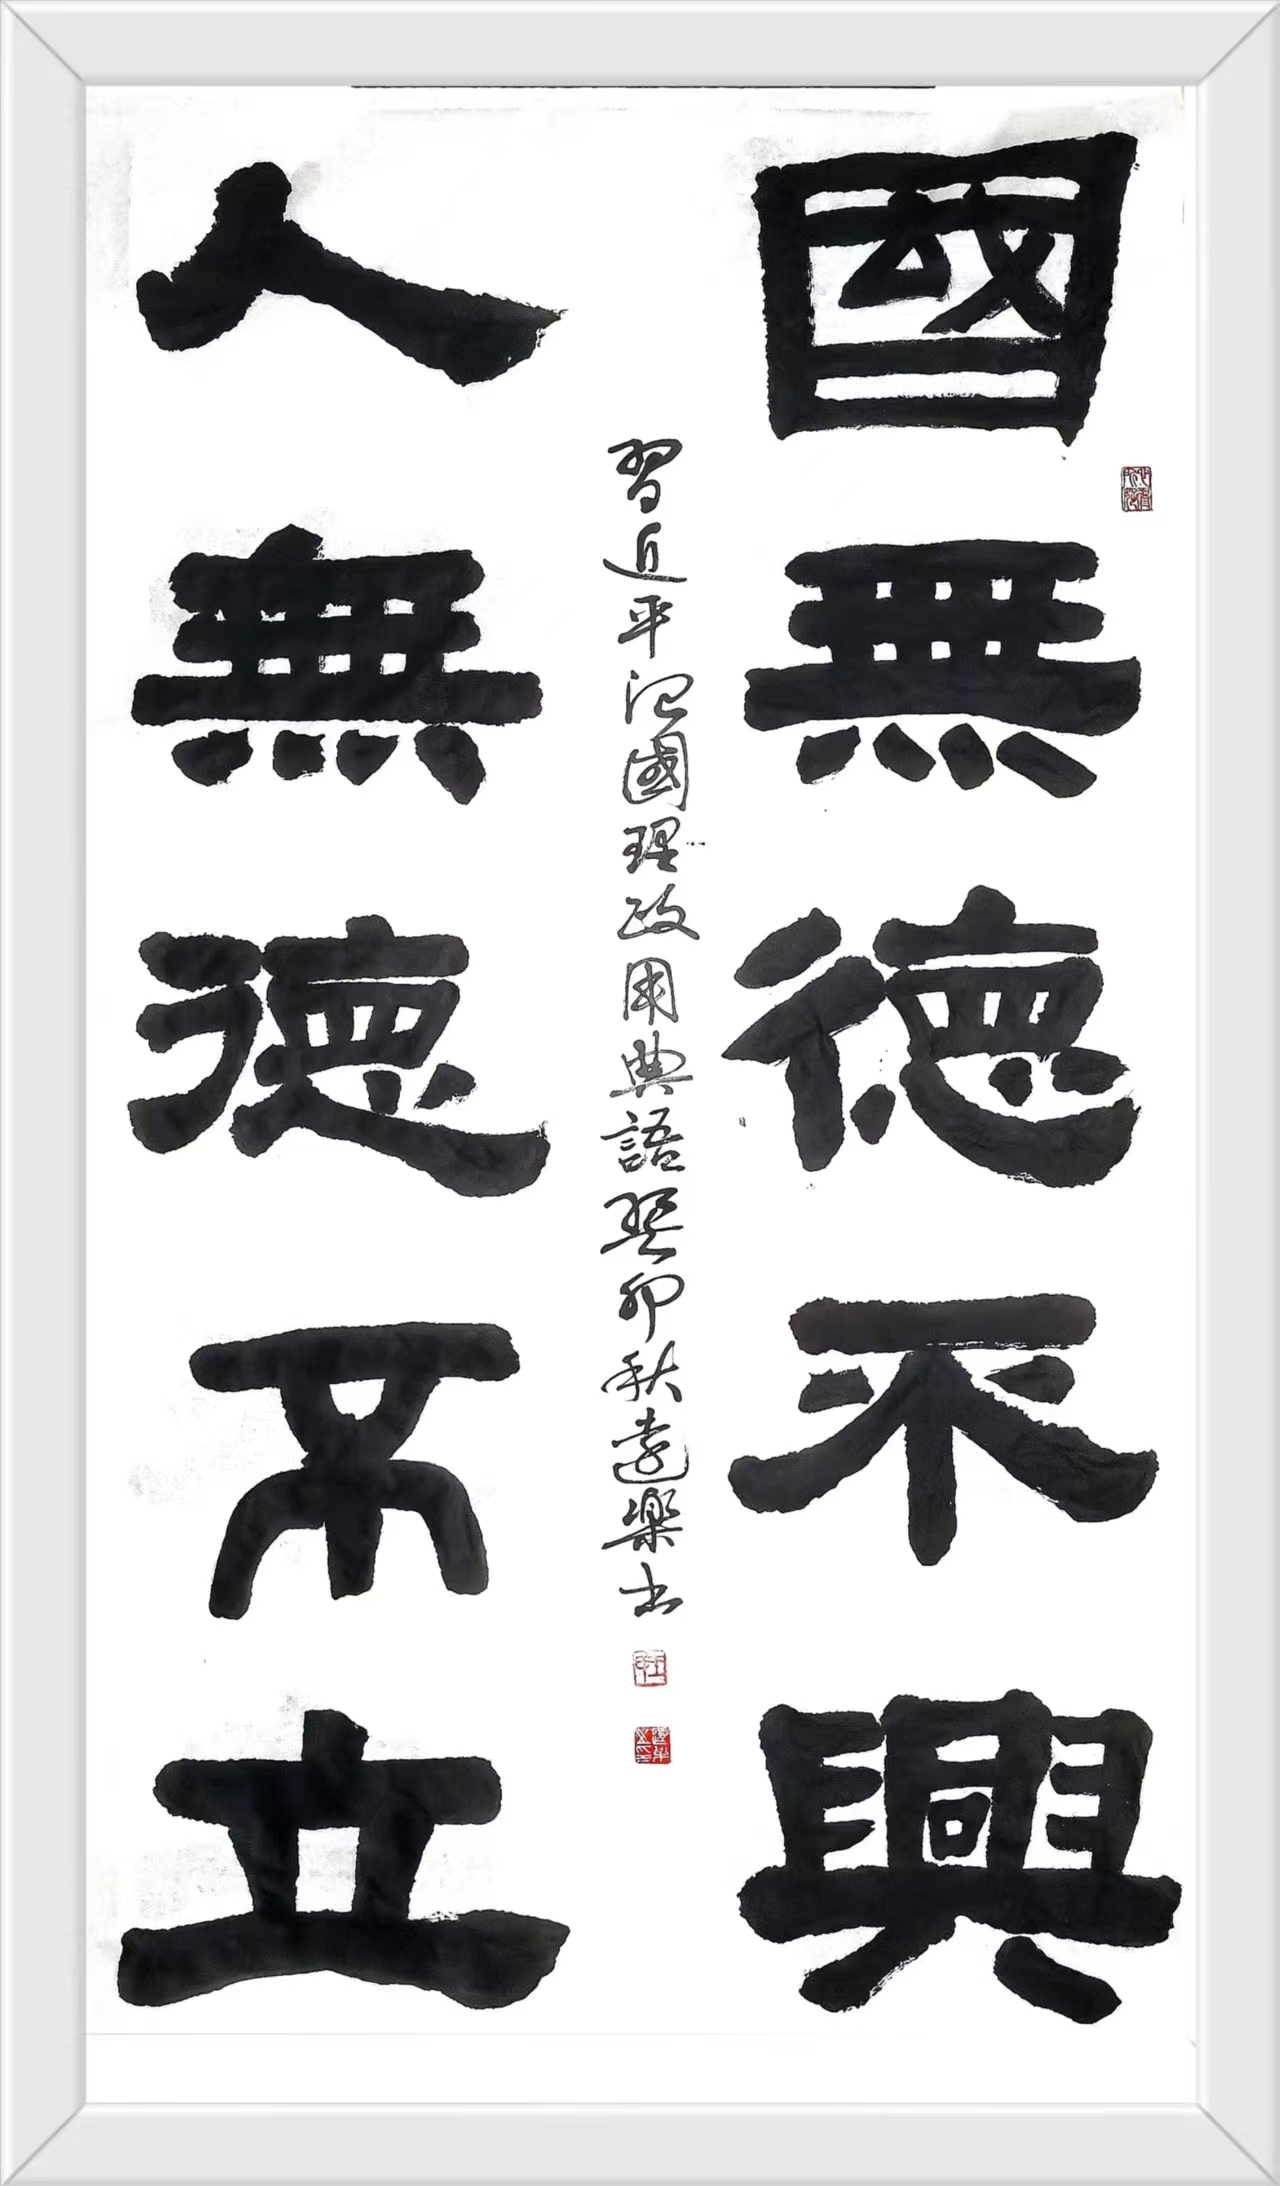 國無德不興
人無德不立
習近平治國理政用典語癸卯秋遠樂書